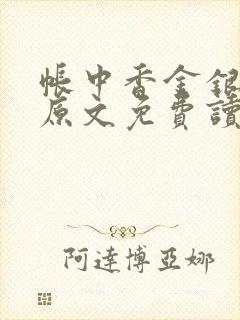 帳中香金銀
原文免費讀
阿達博亞娜